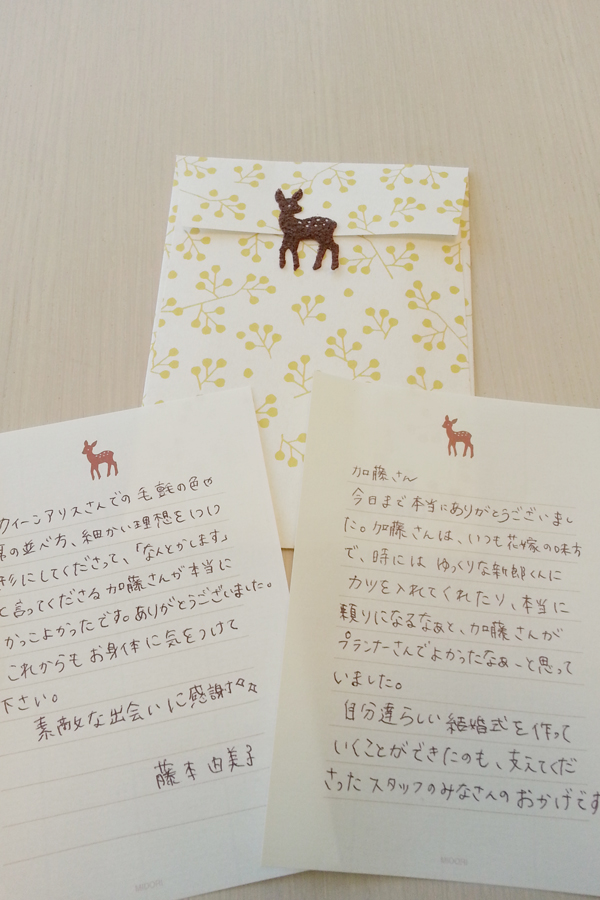 加藤さん
今日まで本当にありがとうございまし
た。加藤さんは、いつも花嫁の味方
で、時には ゆっくりな新郎くんに
カツを入れてくれたり、本当に
頼りになるなぁと、加藤さんが
プランナーさんでよかったなぁーと思って
いました。
自分達らしい結婚式を作って
いくことができたのも、支えてくだ
さった スタッフのみなさんのおかげです
MIDORI
クイーンアリスさんでの毛氈の色や
席の並べ方、細かい理想をいつも
形にしてくださって、「なんとかします」
と言ってくださる加藤さんが本当に
かっこよかったです。ありがとうございました。
これからも お身体に気をつけて
下さい。
素敵な出会いに感謝
藤本 由美子
MIDORI